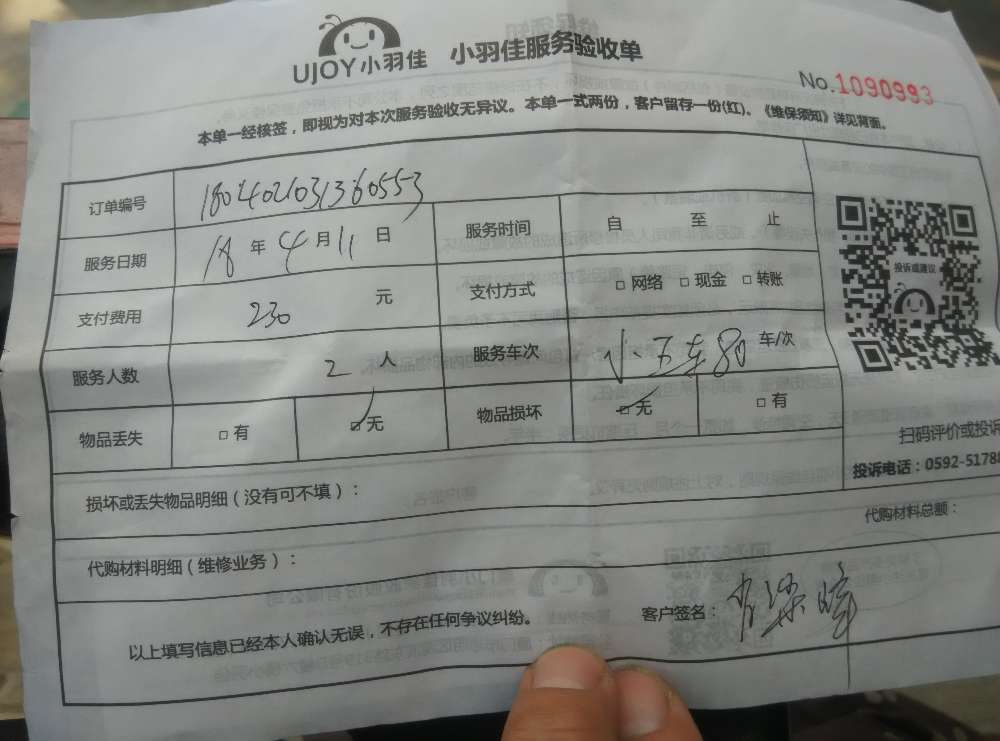 UJOY小羽佳 小羽佳服务验收单
No.1090993
本单一经核签，即视为对本次服务验收无异议。本单一式两份，客户留存一份(红)。《维保须知》详见背面。
订单编号 1804021031360553
服务日期 18年4月11日 服务时间 自 至 止
支付费用 230 元 支付方式 □网络 □现金 □转账
服务人数 2 人 服务车次 小五车80 车/次
物品丢失 □有 □无 物品损坏 □无 □有
投诉或建议
扫码评价或投诉
投诉电话：0592-51788
损坏或丢失物品明细（没有可不填）：
代购材料总额：
代购材料明细（维修业务）：
以上填写信息已经本人确认无误，不存在任何争议纠纷。
客户签名：